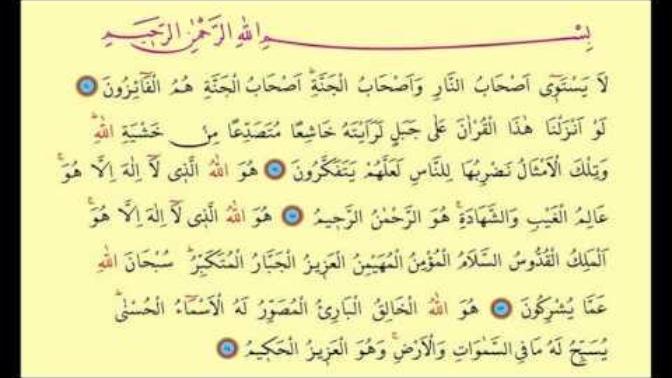 بِسْمِ اللهِ الرَّحْمٰنِ الرَّحِيمِ
لَا يَسْتَوٖٓى اَصْحَابُ النَّارِ وَاَصْحَابُ الْجَنَّةِۜ اَصْحَابُ الْجَنَّةِ هُمُ الْفَٓائِزُونَ
لَوْ اَنْزَلْنَا هٰذَا الْقُرْاٰنَ عَلٰى جَبَلٍ لَرَاَيْتَهُ خَاشِعًا مُتَصَدِّعًا مِنْ خَشْيَةِ اللهِۜ
وَتِلْكَ الْاَمْثَالُ نَضْرِبُهَا لِلنَّاسِ لَعَلَّهُمْ يَتَفَكَّرُونَ هُوَ اللهُ الَّذٖى لَٓا اِلٰهَ اِلَّا هُوَۚ
عَالِمُ الْغَيْبِ وَالشَّهَادَةِۚ هُوَ الرَّحْمٰنُ الرَّحِيمُ هُوَ اللهُ الَّذٖى لَٓا اِلٰهَ اِلَّا هُوَۚ
اَلْمَلِكُ الْقُدُّوسُ السَّلَامُ الْمُؤْمِنُ الْمُهَيْمِنُ الْعَزِيزُ الْجَبَّارُ الْمُتَكَبِّرُۜ سُبْحَانَ اللهِ
عَمَّا يُشْرِكُونَ هُوَ اللهُ الْخَالِقُ الْبَارِئُ الْمُصَوِّرُ لَهُ الْاَسْمَٓاءُ الْحُسْنٰىۜ
يُسَبِّحُ لَهُ مَا فِى السَّمٰوَاتِ وَالْاَرْضِۚ وَهُوَ الْعَزِيزُ الْحَكِيمُ